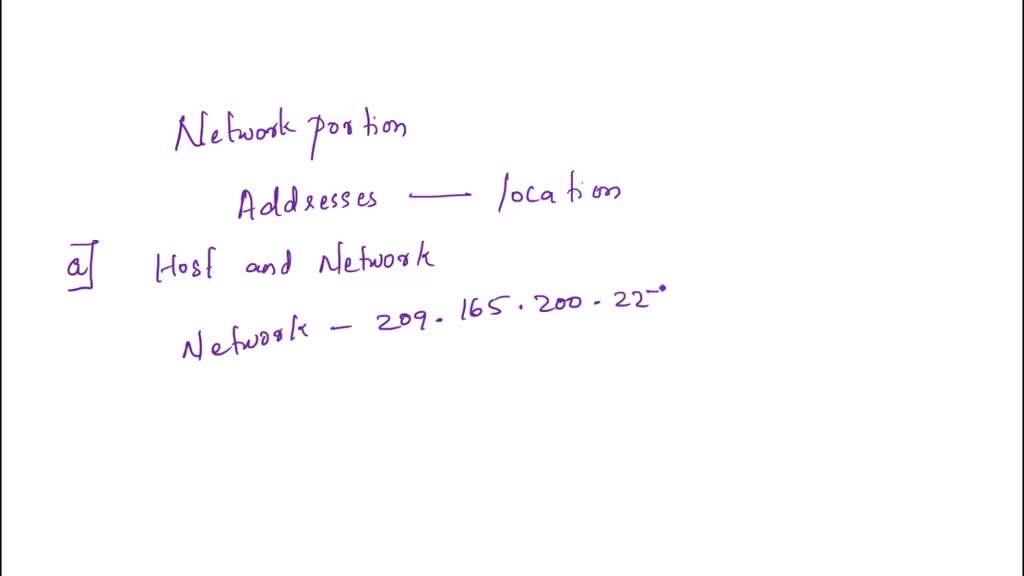 Network portion
Addresses — location
a] Host and Network
Network - 209.165.200.22